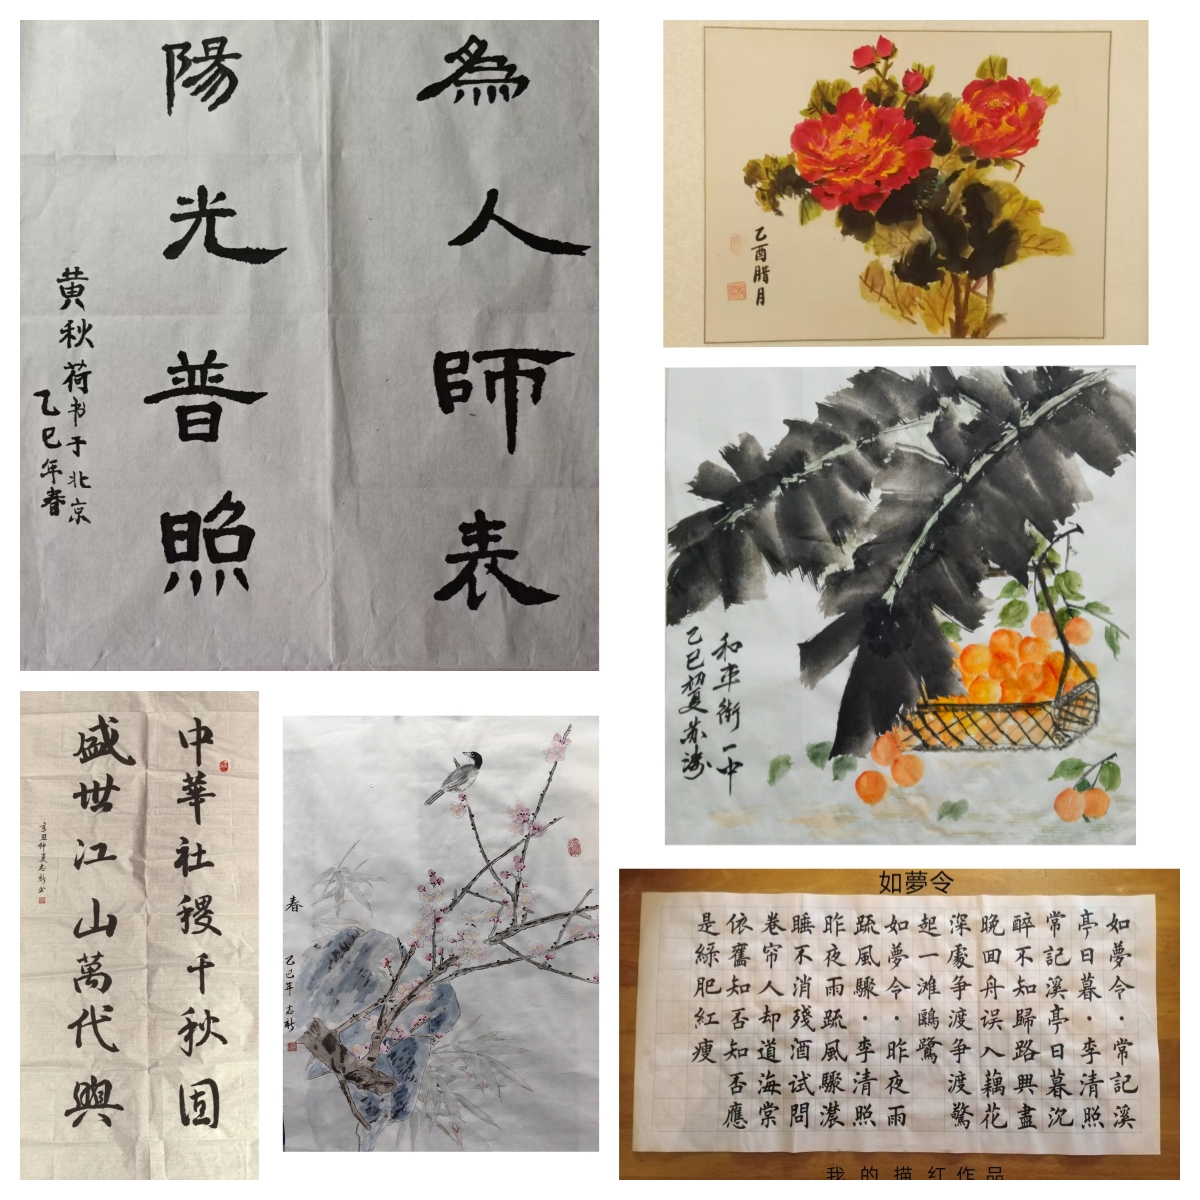 為人師表
陽光普照
黄秋荷书于北京
乙巳年春
乙酉腊月
和平街一中
乙巳初夏苏
中華社稷千秋固
盛世江山萬代興
辛丑仲夏志新书
春
乙巳年 志新
如夢令
如夢令·常記溪
亭日暮·李清照
常記溪亭日暮沉
醉不知歸路興盡
晚囬舟误入藕花
深處争渡争渡驚
起一滩鷗鷺
如夢令·昨夜雨
疏風驟·李清照
昨夜雨疏風驟濃
睡不消殘酒試問
卷帘人却道海棠
依舊知否知否應
是綠肥紅瘦
我的描红作品